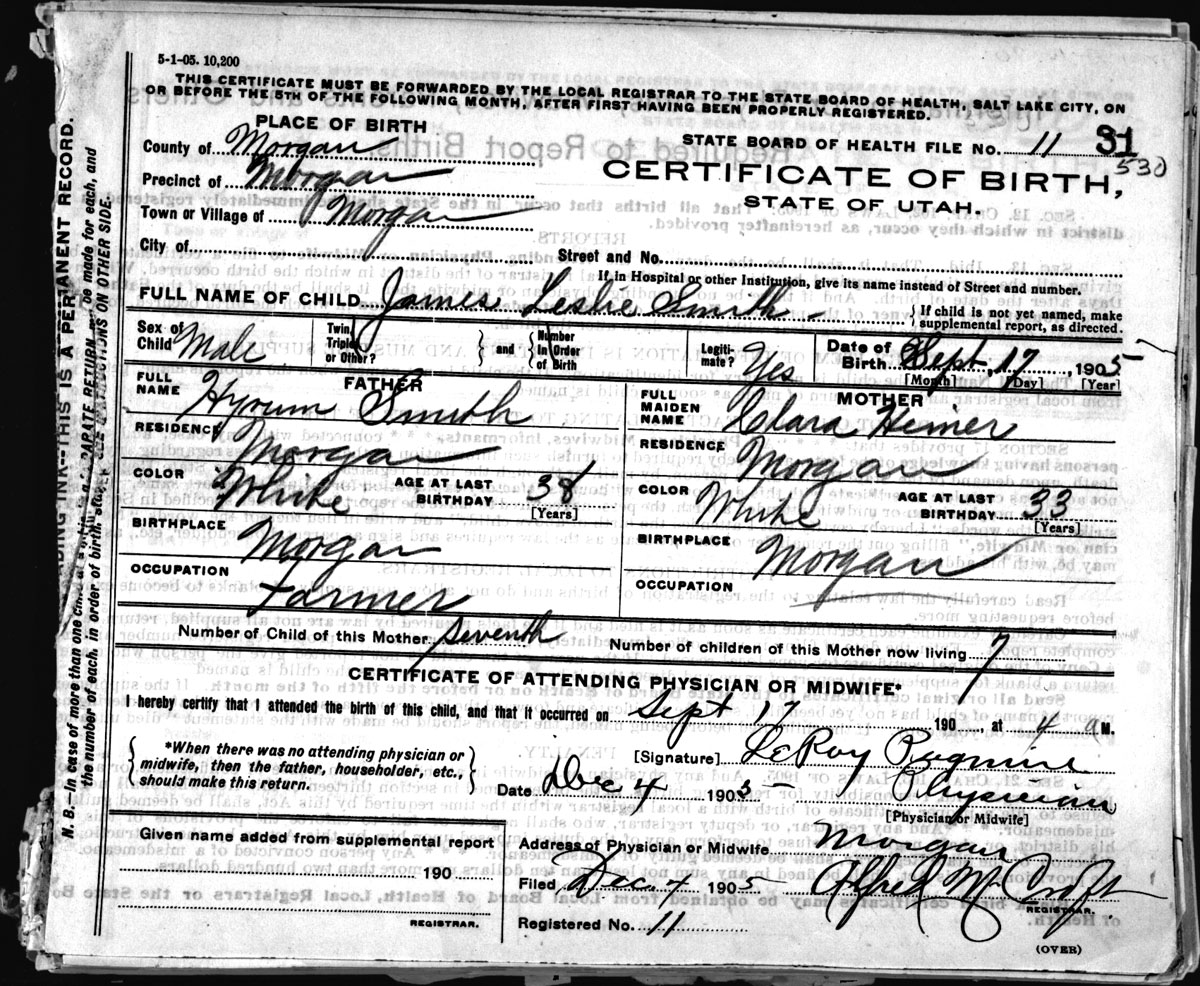 5-1-05. 10,200
THIS CERTIFICATE MUST BE FORWARDED BY THE LOCAL REGISTRAR TO THE STATE BOARD OF HEALTH, SALT LAKE CITY, ON
OR BEFORE THE 5TH OF THE FOLLOWING MONTH, AFTER FIRST HAVING BEEN PROPERLY REGISTERED.
PLACE OF BIRTH
County of Morgan
Precinct of Morgan
Town or Village of Morgan
City of
STATE BOARD OF HEALTH FILE No. 11 31
530
CERTIFICATE OF BIRTH,
STATE OF UTAH.
Street and No.
If in Hospital or other Institution, give its name instead of Street and number.
FULL NAME OF CHILD James Leslie Smith
If child is not yet named, make supplemental report, as directed.
Sex of Child Male
Twin, Triplet or Other?
and
Number in Order of Birth
Legitimate? Yes
Date of Birth Sept, 17, 1905
[Month] [Day] [Year]
FATHER
FULL NAME Hyrum Smith
RESIDENCE Morgan
COLOR White
AGE AT LAST BIRTHDAY 38
[Years]
BIRTHPLACE Morgan
OCCUPATION Farmer
MOTHER
FULL MAIDEN NAME Clara Heiner
RESIDENCE Morgan
COLOR White
AGE AT LAST BIRTHDAY 33
[Years]
BIRTHPLACE Morgan
OCCUPATION
Number of Child of this Mother Seventh
Number of children of this Mother now living 7
CERTIFICATE OF ATTENDING PHYSICIAN OR MIDWIFE*
I hereby certify that I attended the birth of this child, and that it occurred on Sept 17, 190 , at 4 a M.
*When there was no attending physician or
midwife, then the father, householder, etc.,
should make this return.
[Signature] LeRoy
Date Dec 4 1905
Physician
[Physician or Midwife]
Given name added from supplemental report
190
REGISTRAR.
Address of Physician or Midwife Morgan
Filed Dec. 4 1905 Alfred W Croft
REGISTRAR.
Registered No. 11
(OVER)
THIS IS A PERMANENT RECORD.
N. B.—In case of more than one child at a
the number of each, in order of birth